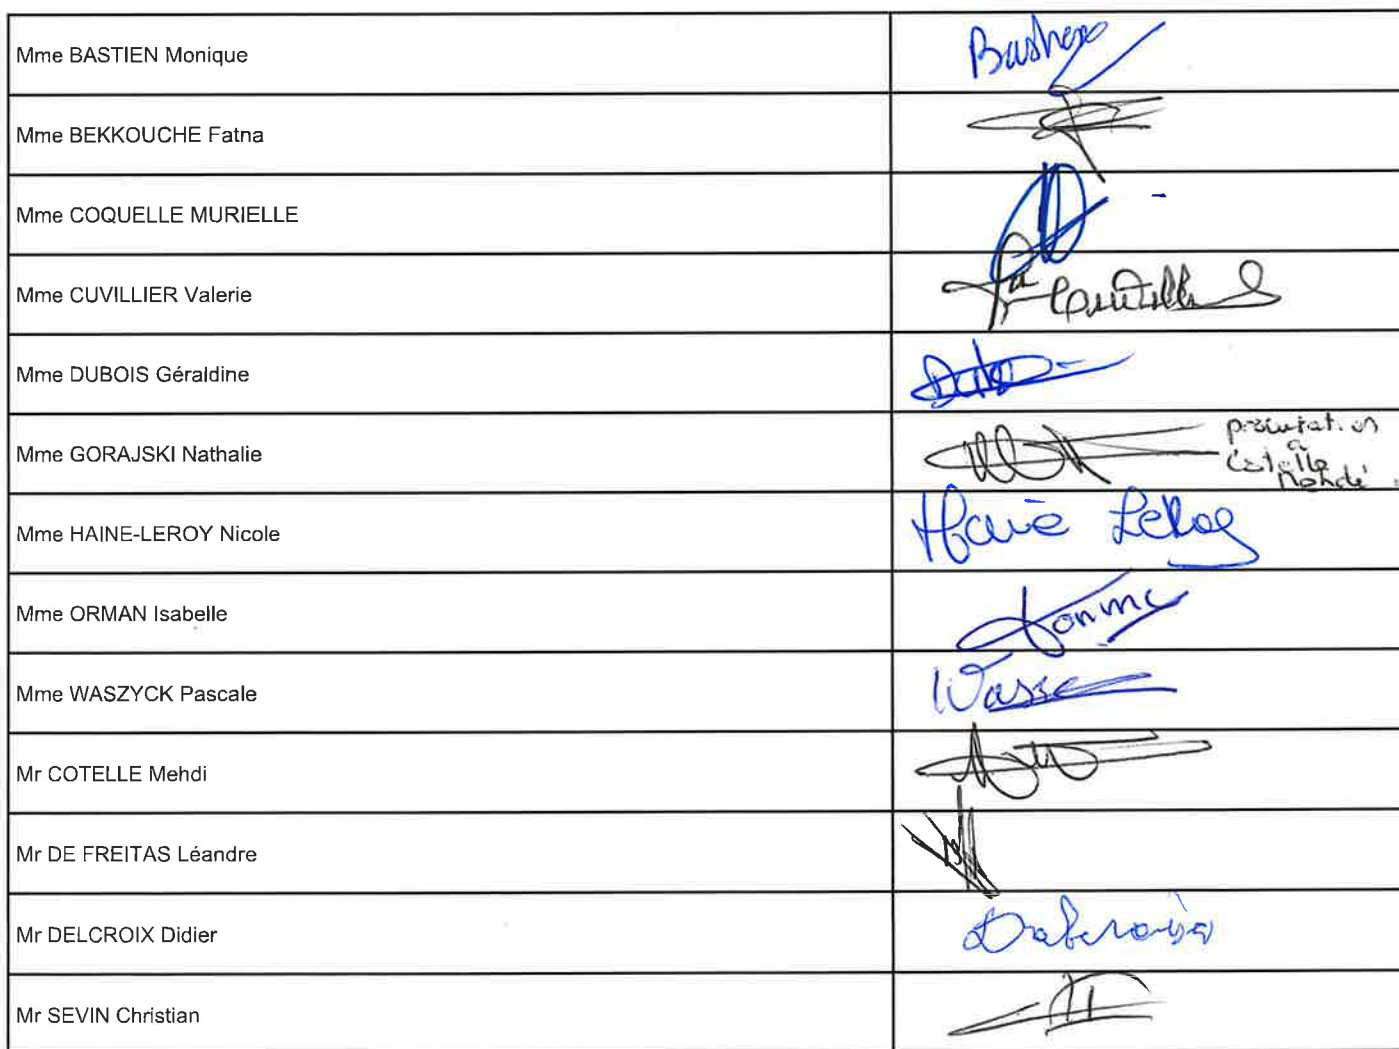 Mme BASTIEN Monique
Mme BEKKOUCHE Fatna
Mme COQUELLE MURIELLE
Mme CUVILLIER Valerie
Mme DUBOIS Géraldine
Mme GORAJSKI Nathalie
procuration
à
Mme HAINE-LEROY Nicole
Haine Leroy
Mme ORMAN Isabelle
Mme WASZYCK Pascale
Mr COTELLE Mehdi
Mr DE FREITAS Léandre
Mr DELCROIX Didier
Mr SEVIN Christian